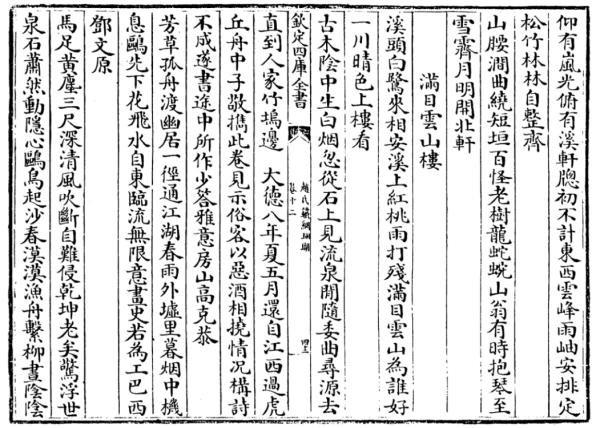 仰有嵐光俯有溪軒牕初不計東西雲峰雨岫安排定
松竹林林自整齊
山腰澗曲繞短垣百怪老樹龍蛇蜿山翁有時抱琴至
雪霽月明開北軒
滿目雲山樓
溪頭白鷺來相安溪上紅桃雨打殘滿目雲山為誰好
一川晴色上樓看
古木陰中生白烟忽從石上見流泉閒隨委曲尋源去
欽定四庫全書
趙氏鐵網珊瑚
卷十二
直到人家竹塢邊 大德八年夏五月還自江西過虎
丘舟中子敬攜此卷見示俗客以惡酒相撓情況構詩
不成遂書途中所作少答雅意房山高克恭
芳草孤舟渡幽居一徑通江湖春雨外墟里暮烟中機
息鷗先下花飛水自東臨流無限意畫史若為工巴西
鄧文原
馬足黄塵三尺深清風吹斷自難侵乾坤老矣驚浮世
泉石蕭然動隱心鷗鳥起沙春漠漠漁舟繫柳晝陰陰